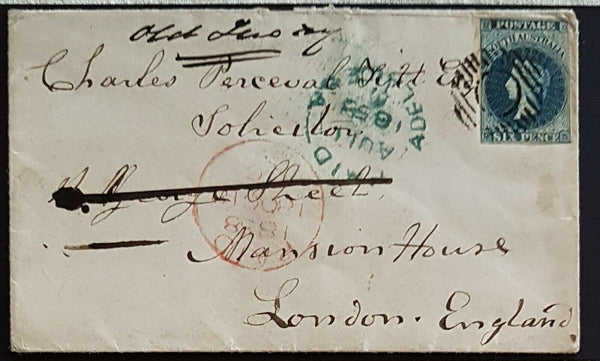 Old Jewry
Charles Perceval Pitt Esq
Solicitor
George Street,
Mansion House
London. England
POSTAGE
SOUTH AUSTRALIA
SIX PENCE
PAID
ADELAIDE
1858